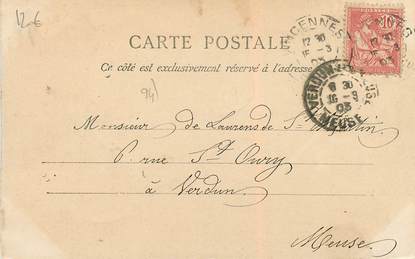 12€
CARTE POSTALE
Ce côté est exclusivement réservé à l'adresse
(94)
CENNES
12 30
15 - 3
03
10
VERDUN
8 30
16 - 3
03
MEUSE
Monsieur de Laurens de St Martin
6. rue St Oury
à Verdun.
Meuse.